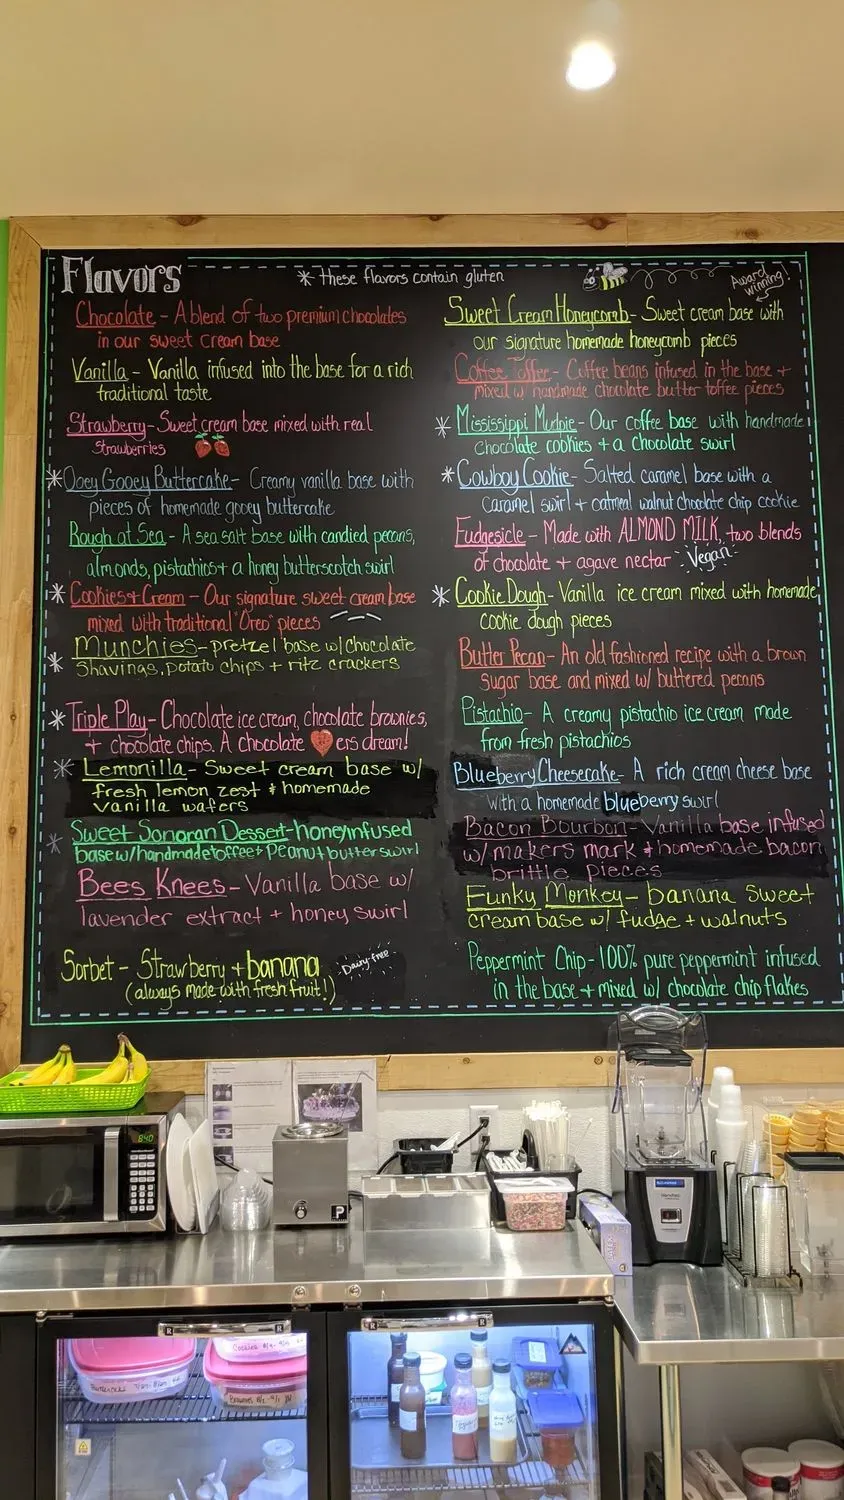 Flavors
* these flavors contain gluten
Award winning!
Chocolate - A blend of two premium chocolates
in our sweet cream base
Vanilla - Vanilla infused into the base for a rich
traditional taste
Strawberry - Sweet cream base mixed with real
strawberries
* Ooey Gooey Buttercake - Creamy vanilla base with
pieces of homemade gooey buttercake
Rough at Sea - A sea salt base with candied pecans,
almonds, pistachios + a honey butterscotch swirl
* Cookies + Cream - Our signature sweet cream base
mixed with traditional "Oreo" pieces
Munchies - pretzel base w/chocolate
* shavings, potato chips + ritz crackers
* Triple Play - Chocolate ice cream, chocolate brownies,
+ chocolate chips. A chocolate ers dream!
* Lemonilla - Sweet cream base w/
fresh lemon zest + homemade
vanilla wafers
* Sweet Sonoran Dessert - honey infused
base w/handmade toffee + Peanut butter swirl
Bees Knees - Vanilla base w/
lavender extract + honey swirl
Sorbet - Strawberry + banana
Dairy-free
(always made with fresh fruit!)
Sweet Cream Honeycomb - Sweet cream base with
our signature homemade honeycomb pieces
Coffee Toffee - Coffee beans infused in the base +
mixed w/ handmade chocolate butter toffee pieces
* Mississippi Mudpie - Our coffee base with handmade
chocolate cookies + a chocolate swirl
* Cowboy Cookie - Salted caramel base with a
caramel swirl + oatmeal walnut chocolate chip cookie
Fudgesicle - Made with ALMOND MILK, two blends
of chocolate + agave nectar Vegan
* Cookie Dough - Vanilla ice cream mixed with homemade
cookie dough pieces
Butter Pecan - An old fashioned recipe with a brown
sugar base and mixed w/ buttered pecans
Pistachio - A creamy pistachio ice cream made
from fresh pistachios
Blueberry Cheesecake - A rich cream cheese base
with a homemade blueberry swirl
Bacon Bourbon - Vanilla base infused
w/ makers mark + homemade bacon
brittle pieces
Funky Monkey - banana sweet
cream base w/ fudge + walnuts
Peppermint Chip - 100% pure peppermint infused
in the base + mixed w/ chocolate chip flakes
840
P
LATEX
Buttercake
Cookies
Brownies